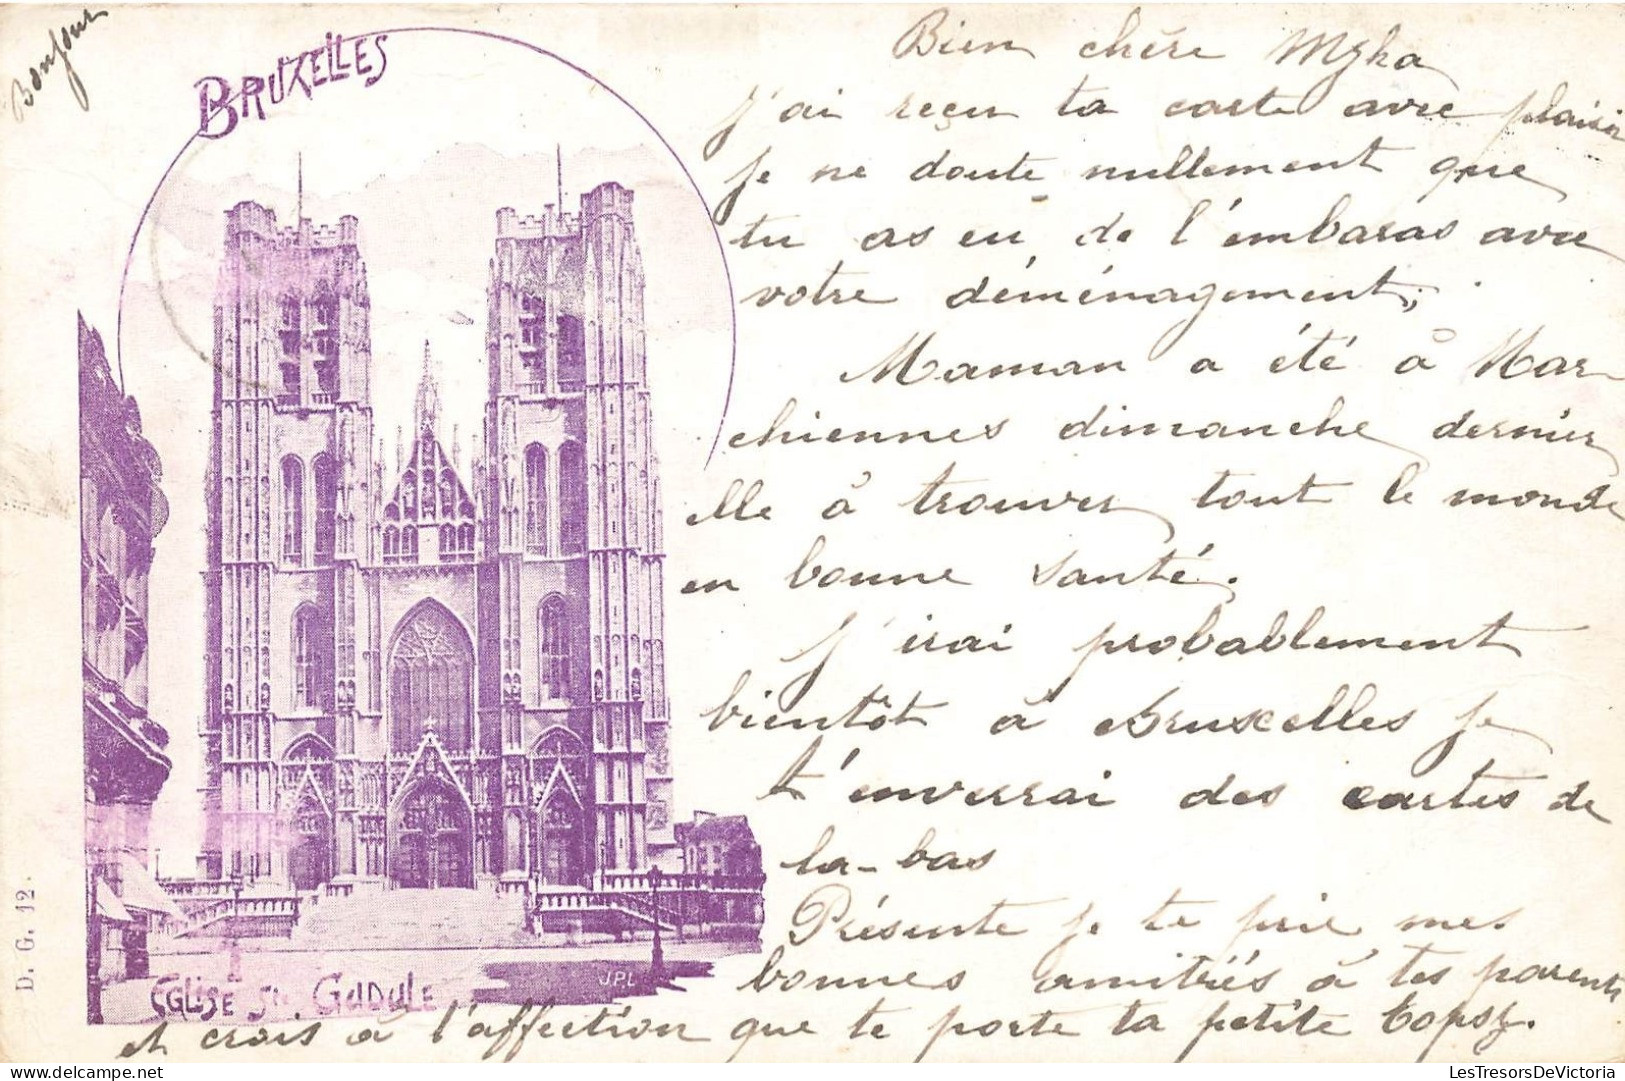 Bonjour
BRUXELLES
Bien chère
J'ai reçu ta carte avec plaisir
Je ne doute nullement que
tu as eu de l'embaras avec
votre déménagement,
Maman a été à Mar-
chiennes dimanche dernier
elle à trouver tout le monde
en bonne santé.
J'irai probablement
bientôt à Bruxelles je
t'enverrai des cartes de
la-bas
Présente je te prie mes
bonnes amitiés à tes parents
et crois à l'affection que te porte ta petite
EGLISE STE GUDULE
J.P.L
D. G. 12.
LesTresorsDeVictoria